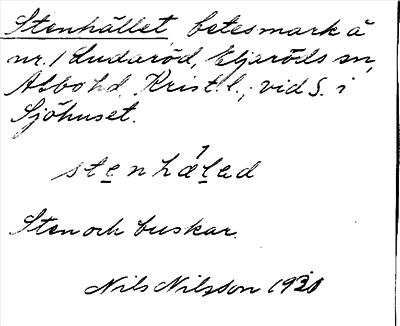 Stenhället, betesmark å
nr. 1 Ludaröd, Eljaröds sn,
Albo hd. Krist. l., vid S. i
Sjöhuset.
stenhälad
Sten och buskar.
Nils Nilsson